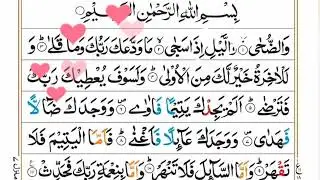 بِسْمِ اللّٰهِ الرَّحْمٰنِ الرَّحِيْمِ
وَالضُّحٰى ۙ وَالَّيْلِ اِذَا سَجٰى ۙ مَا وَدَّعَكَ رَبُّكَ وَمَا قَلٰى ؕ وَ
لَلْاٰخِرَةُ خَيْرٌ لَّكَ مِنَ الْاُوْلٰى ؕ وَلَسَوْفَ يُعْطِيْكَ رَبُّكَ
فَتَرْضٰى ؕ اَلَمْ يَجِدْكَ يَتِيْمًا فَاٰوٰى ۪ وَوَجَدَكَ ضَآلًّا
فَهَدٰى ۪ وَوَجَدَكَ عَآئِلًا فَاَغْنٰى ؕ فَاَمَّا الْيَتِيْمَ فَلَا
تَقْهَرْ ؕ وَاَمَّا السَّآئِلَ فَلَا تَنْهَرْ ؕ وَاَمَّا بِنِعْمَةِ رَبِّكَ فَحَدِّثْ